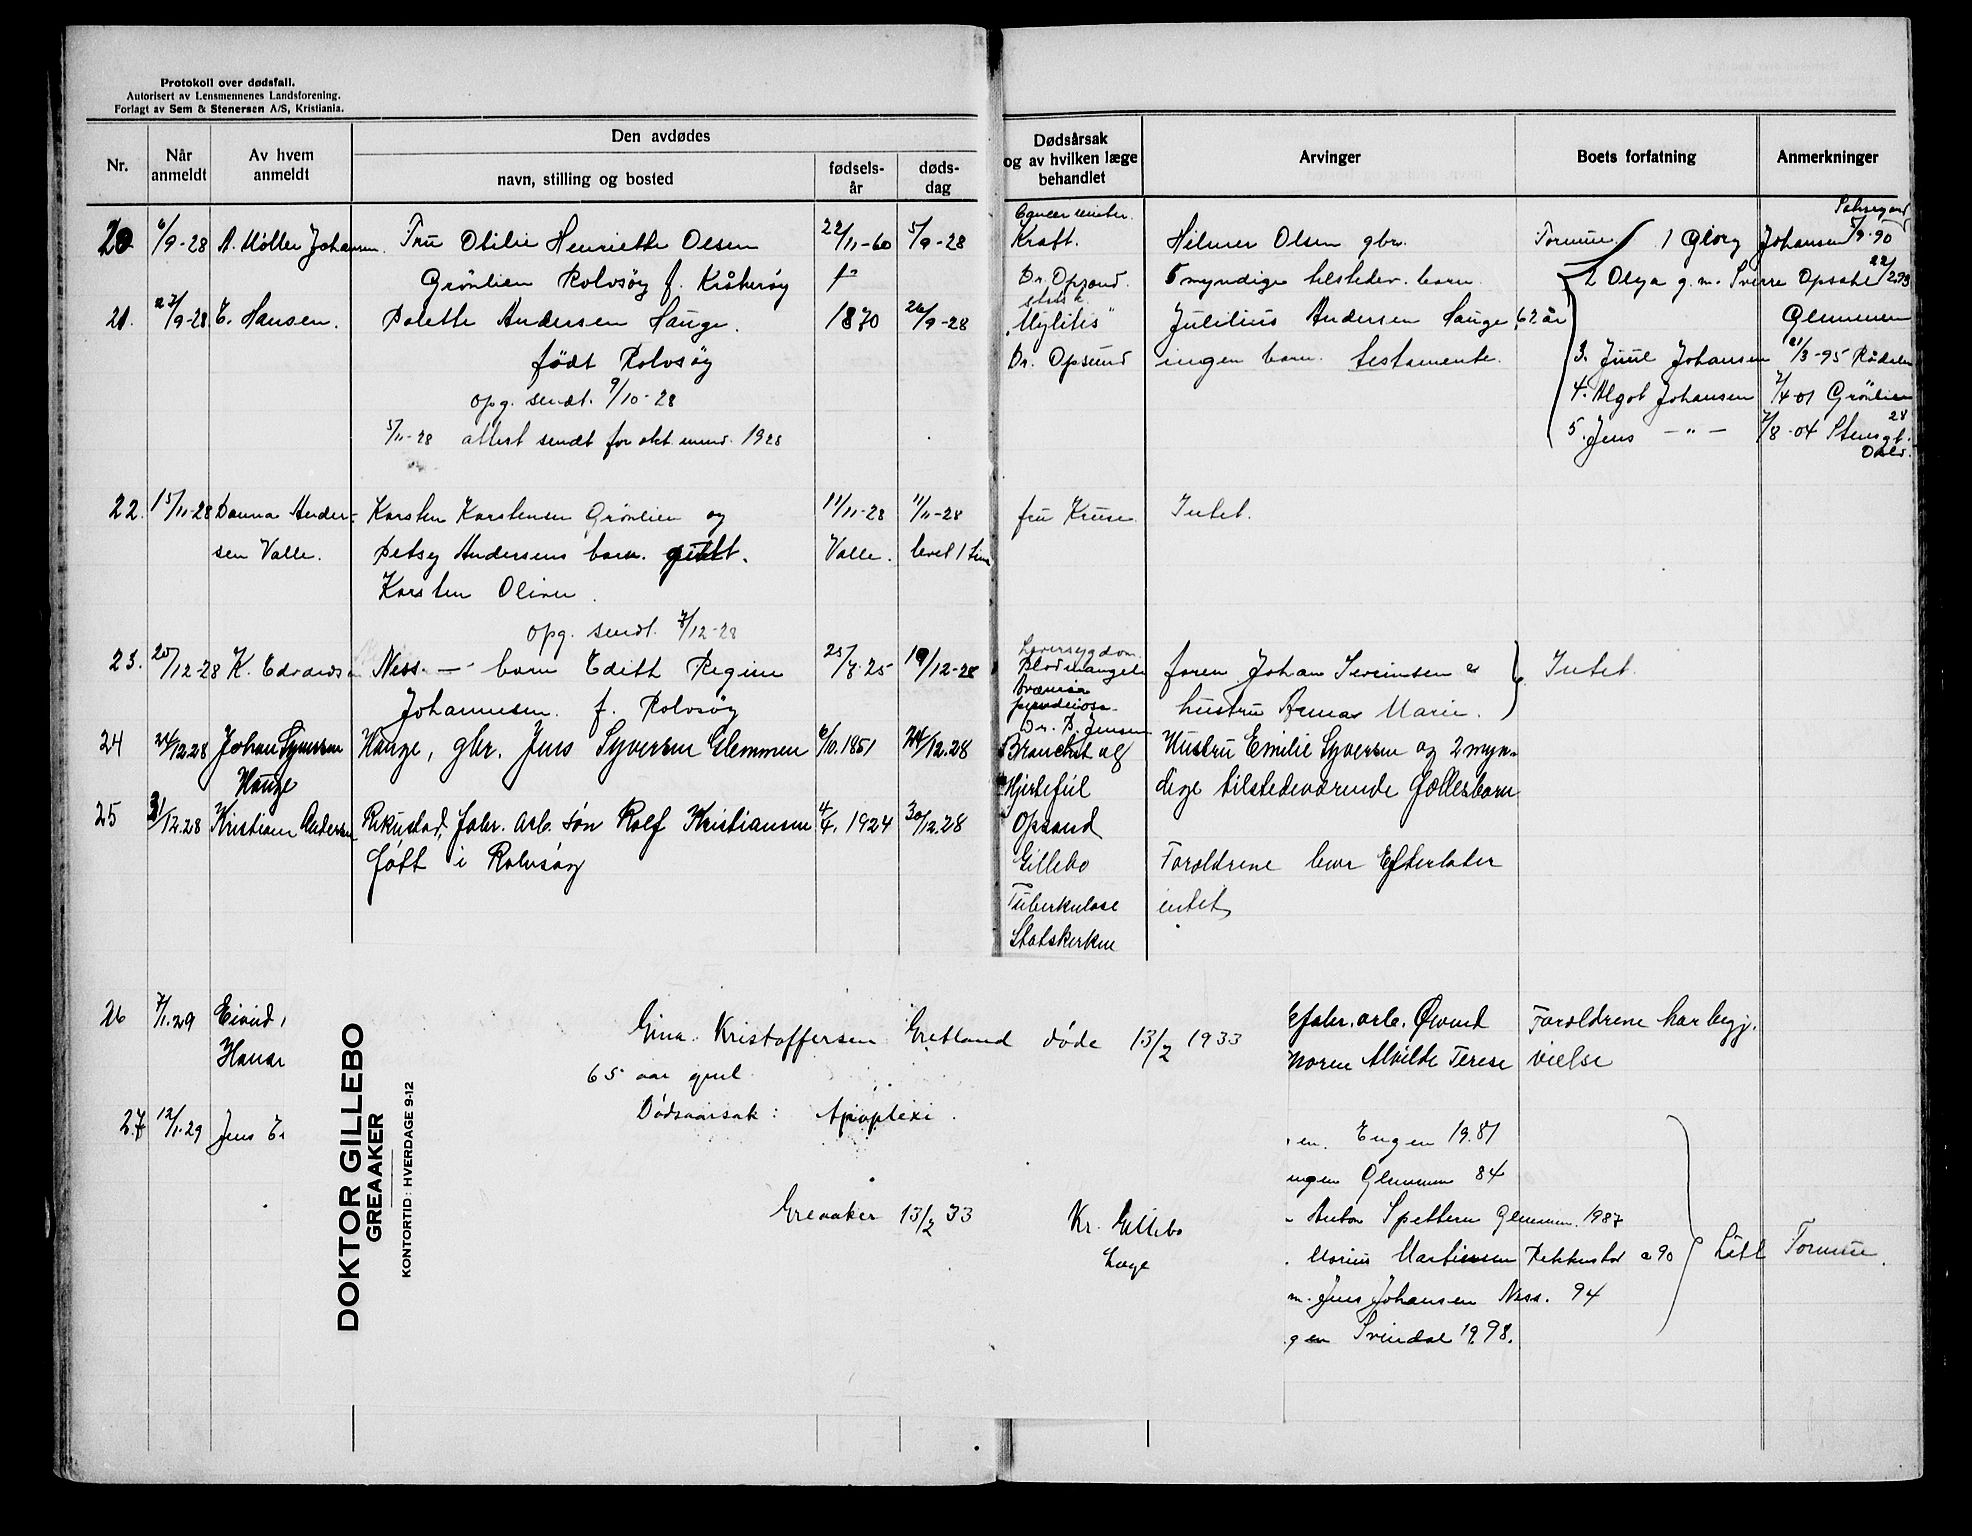 Protokoll over dødsfall.
Autorisert av Lensmennenes Landsforening.
Forlagt av Sem & Stenersen A/S, Kristiania.
Nr.
Når anmeldt
Av hvem anmeldt
Den avdødes
navn, stilling og bosted
fødsels-år
døds-dag
Dødsårsak og av hvilken læge behandlet
Arvinger
Boets forfatning
Anmerkninger
20 6/9-28 A. Møller Johansen. Fru Otilie Henriette Olsen 22/11-60 5/9-28 Kraft. Hilmer Olsen gbr. Formue 1 Glory Johansen 5/9-90
Grønlien Rolvsøy f. Kråkerøy Dr. Opsand. 5 myndige tilstedev. barn. 2 Olga g.m. Sverre Opsahl
21. 27/9-28 E. Hansen. Palette Andersen Hauge. 1870 26/9-28 "Mylitis" Julilius Andersen Hauge, 62 år Glemmen
født Rolvsøy Dr. Opsund ingen barn. testamente. 3. Juul Johansen 21/3-95
opg. sendt. 9/10-28 4. Algot Johansen 7/4-01 Grønlien
5/11-28 attest sendt for okt. mnd. 1928 5. Jens — " — 7/8-04 Stensgt. 28
Oslo.
22. 15/11-28 Danna Ander- Karsten Karstensen Grønlien og 11/11-28 11/11-28 fru Kruse. Intet.
sen Valle. Betsy Andersens barn. gutt. Valle. levet 1 time
Karsten Oliver.
opg. sendt. 7/12-28
23. 20/12-28 K. Edvardsen Ness. — barn Edith Regine 25/8-25 19/12-28 Leversygdom Blodmangel foren. Johan Severinsen & Intet.
Johannesen. f. Rolvsøy Dr. B. Jensen hustru Anna Marie.
24 24/12.28 Johan Syversen Hauge, gbr. Jens Syversen Glemmen 6/10.1851 24/12.28 Bronchit og Hustru Emilie Syversen og 2 myn-
Hauge Hjertefeil dige tilstedeværende fællesbarn
25 31/12.28 Kristian Andersen Rekustad, fabr. arb. søn Rolf Kristiansen 4/4. 1924 30/12.28 Opsand
født i Rolvsøy Gillebo Foreldrene lever Efterlater
Tuberkulose intet
Statskirken
26 7/1.29 Eivind
Hanse
fabr. arb. Øivind Foreldrene har begj.
Noren Alvilde Terese vielse
DOKTOR GILLEBO
GREAAKER
KONTORTID: HVERDAGE 9-12
Gina Kristoffersen Gretland døde 13/2 1933
65 aar gml.
Dødsaarsak: Apoplexi.
Greaaker 13/2 33
Kr. Gillebo
Læge
27 12/1.29 Jens E.
en. Engen 19.81
ngen Glemmen 84
Anton Spetteren Glemmen. 1987
Marius Martinsen Rekkustad a 90 Litt Formue.
m. Jens Johansen Ness. 94
gen Svindal 19.98.